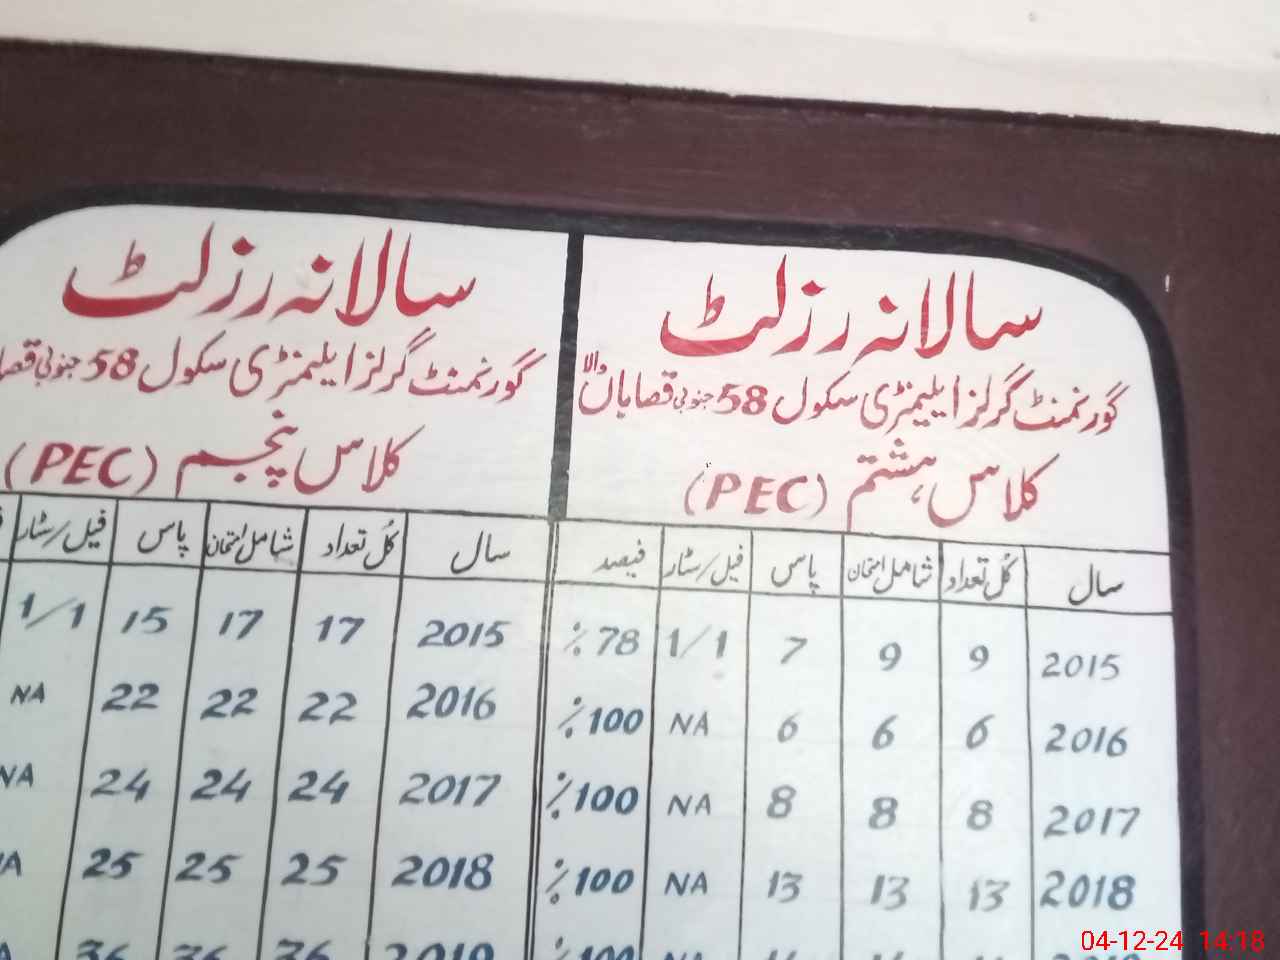 سالانہ رزلٹ
گورنمنٹ گرلز ایلیمنٹری سکول 58 جنوبی قصاباں والا
کلاس ہشتم (PEC)
سال کل تعداد شامل امتحان پاس فیل/رسٹار فیصد
2015 9 9 7 1/1 78٪
2016 6 6 6 NA 100٪
2017 8 8 8 NA 100٪
2018 13 13 13 NA 100٪
100٪
سالانہ رزلٹ
گورنمنٹ گرلز ایلیمنٹری سکول 58 جنوبی
کلاس پنجم (PEC)
سال کُل تعداد شامل امتحان پاس فیل/رسٹار
2015 17 17 15 1/1
2016 22 22 22 NA
2017 24 24 24 NA
2018 25 25 25
2019 36 36 36
04-12-24 14:18